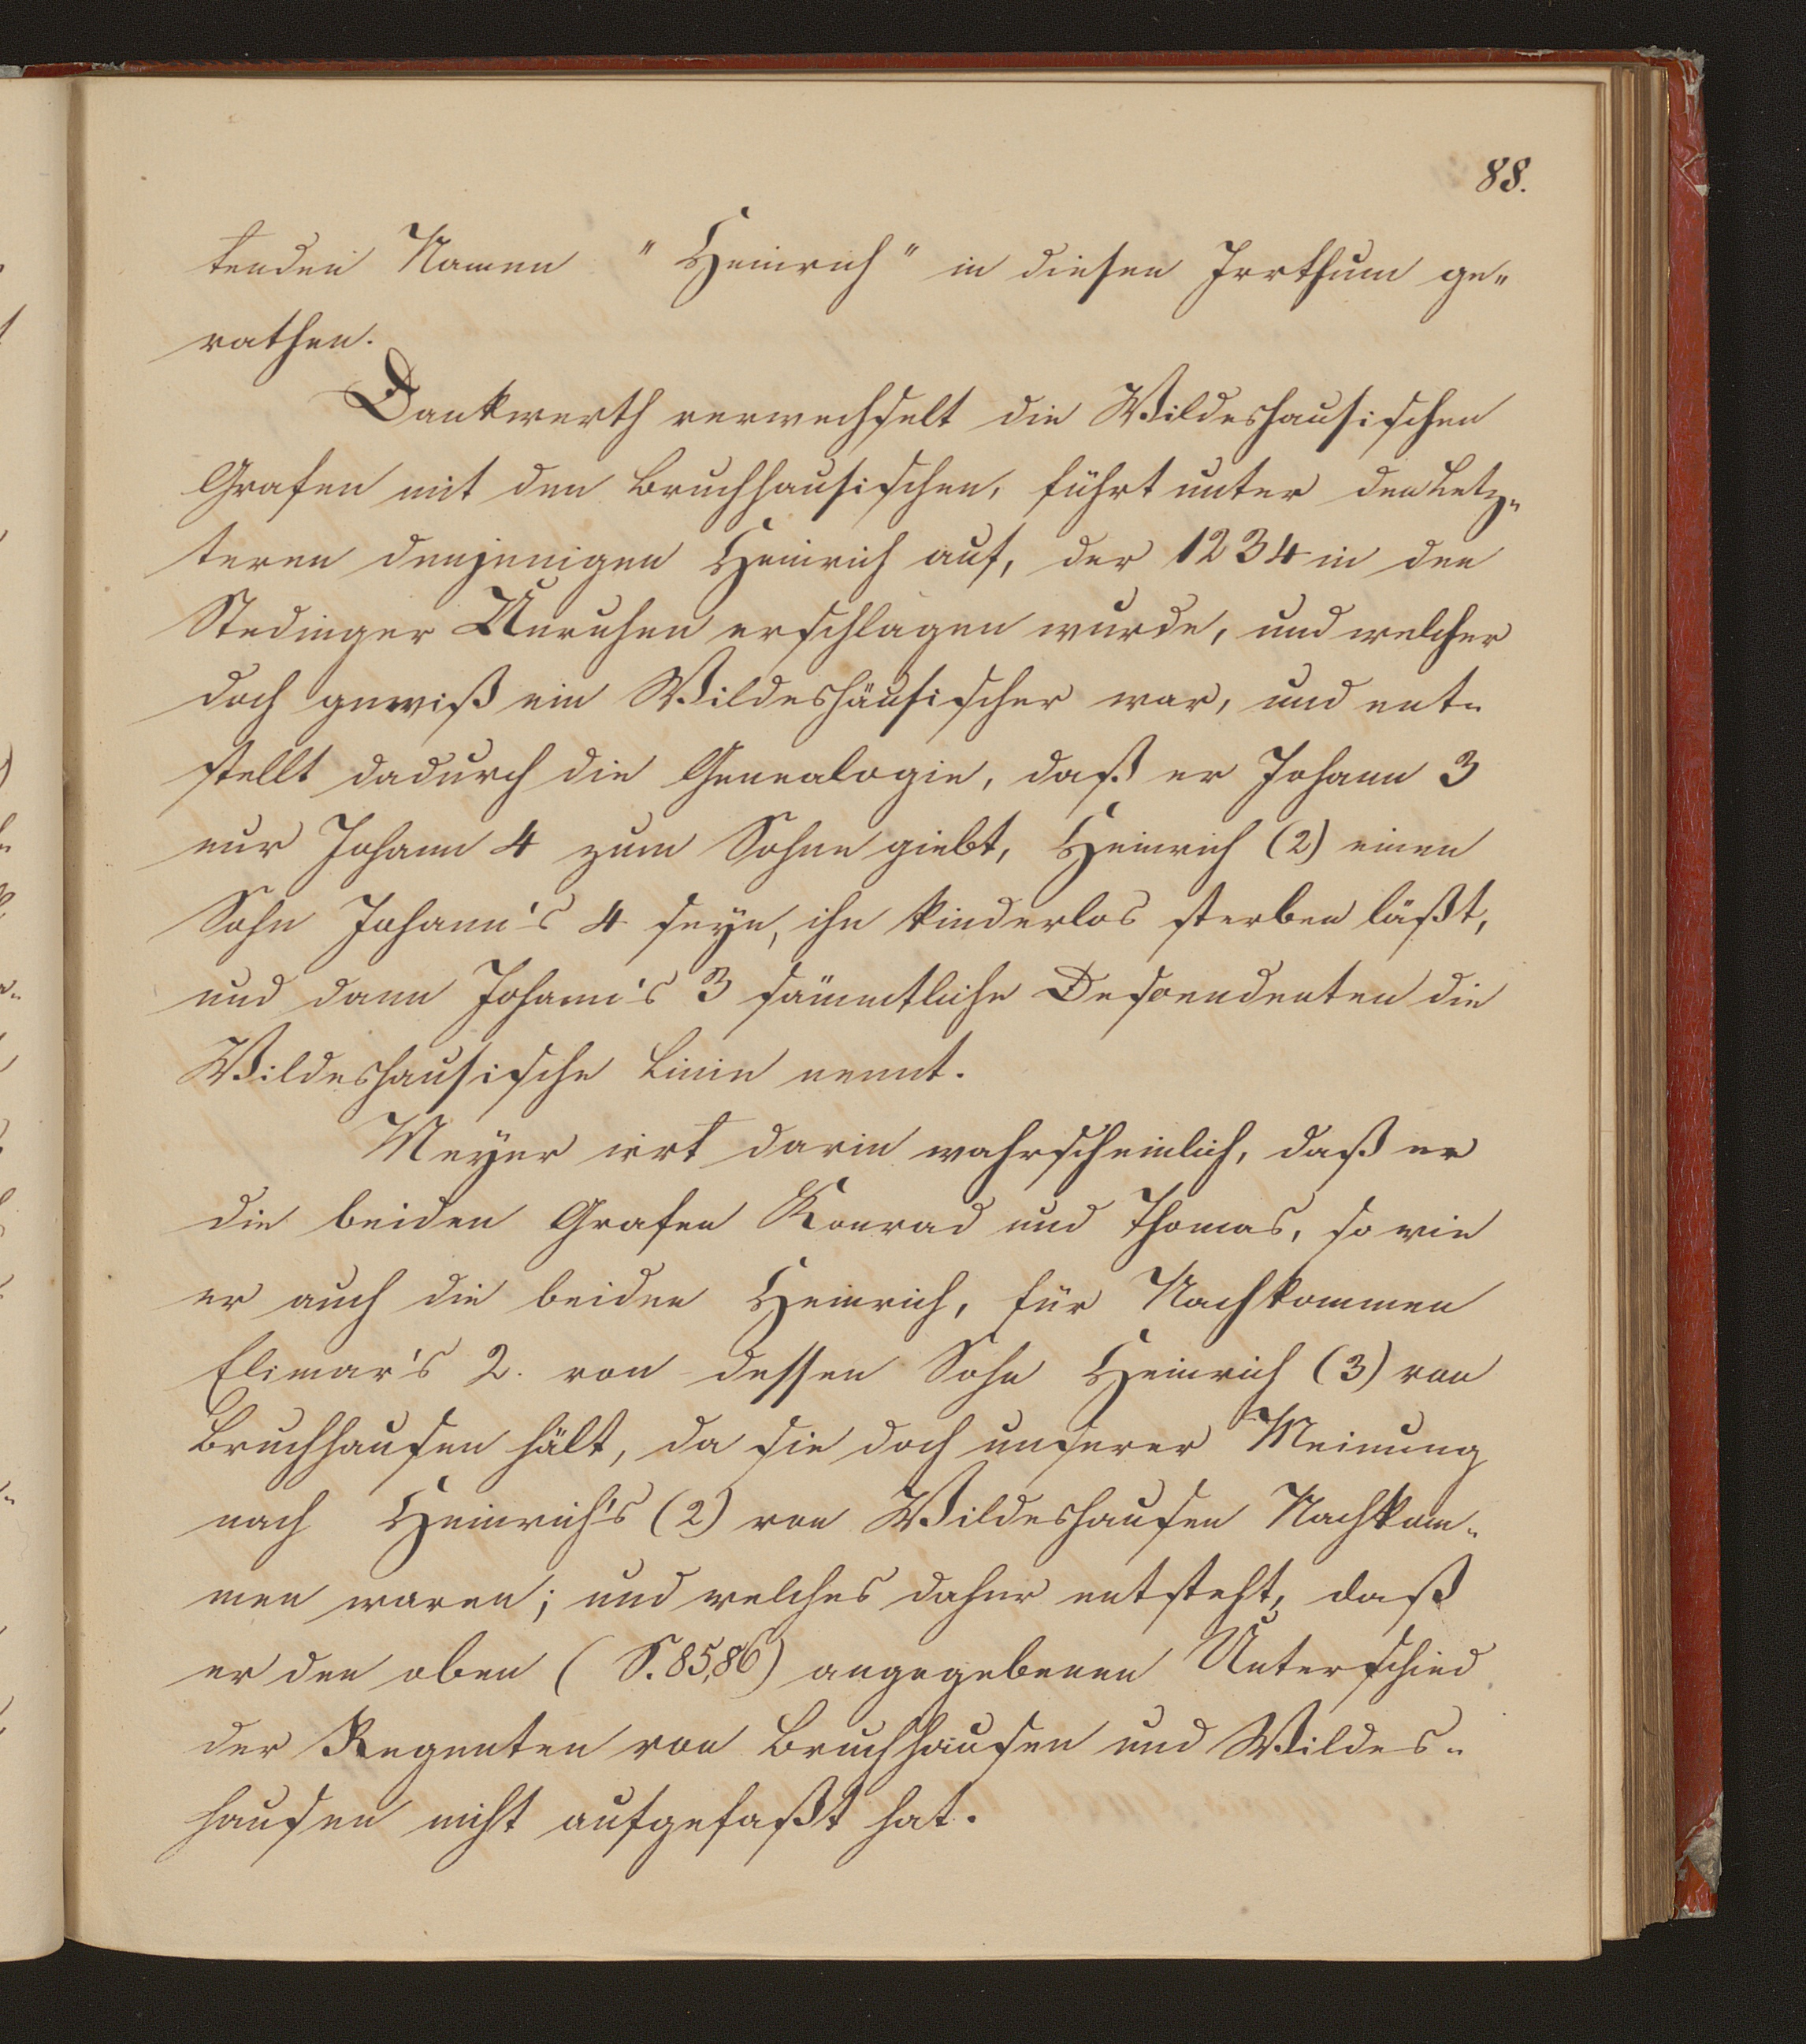 88.
tenden Namen "Heinrich" in diesen Irrthum ge-
rathen.
Dankwerth verwechselt die Wildeshausischen
Grafen mit den Bruchhausischen, führt unter den Letz-
teren denjenigen Heinrich auf, der 1234 in den
Stedinger Unruhen erschlagen wurde, und welcher
doch gewiß ein Wildeshäusischer war, und ent-
stellt dadurch die Genealogie, daß er Johann 3
nur Johann 4 zum Sohne giebt, Heinrich (2) einen
Sohn Johann's 4 seyn, ihn kinderlos sterben läßt,
und dann Johann's 3 sämmtliche Descendenten die
Wildeshausische Linie nennt.
Meyer irrt darin wahrscheinlich, daß er
die beiden Grafen Konrad und Thomas, so wie
er auch die beiden Heinrich, für Nachkommen
Elimar's 2. von dessen Sohn Heinrich (3) von
Bruchhausen hält, da sie doch unserer Meinung
nach Heinrich's (2) von Wildeshausen Nachkom-
men waren; und welches daher entsteht, daß
er den oben (S. 85,86) angegebenen Unterschied
der Regenten von Bruchhausen und Wildes-
hausen nicht aufgefaßt hat.